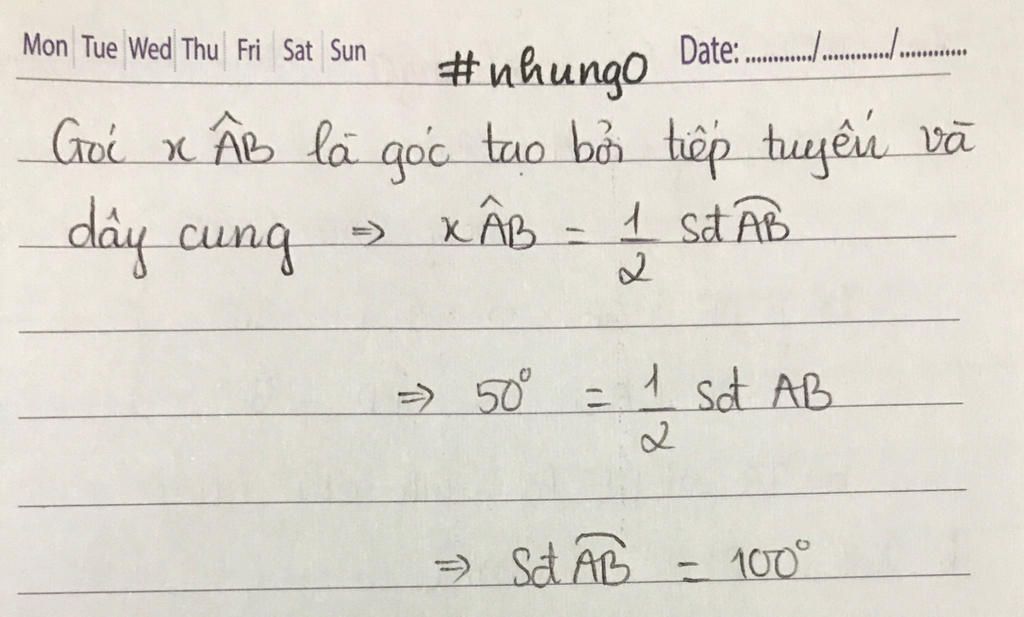 Mon Tue Wed Thu Fri Sat Sun #nhung0 Date: ............/............/............
Gói xÂB là góc tạo bởi tiếp tuyến và
dây cung => xÂB = 1/2 Sđ A͡B
=> 50° = 1/2 Sđ AB
=> Sđ A͡B = 100°